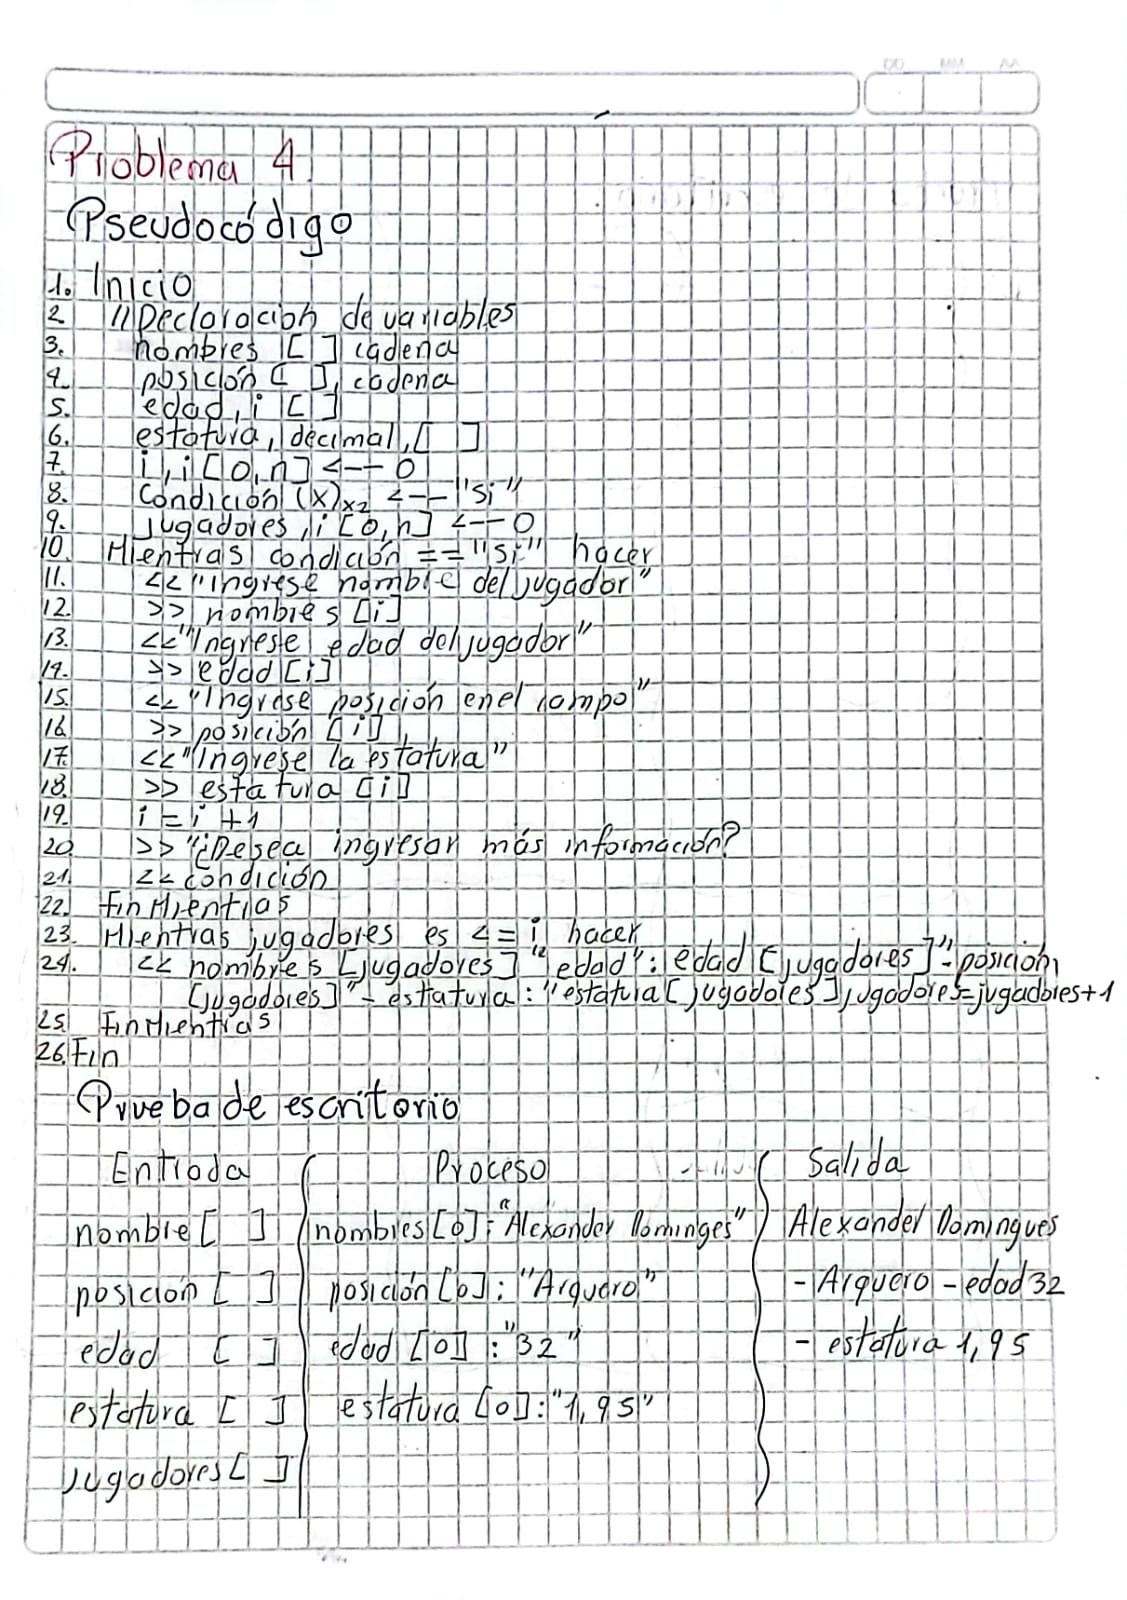 DD MM AA
Problema 4.
Pseudocódigo
1. Inicio
2 //Declaración de variables
3. nombres [ ] cadena
4. posición [ ], cadena
5. edad, i [ ]
6. estatura, decimal, [ ]
7. i, i [0,n] <-- 0
8. Condición (x)x2 <-- "si"
9. jugadores, i [0,n] <-- 0
10. Mientras condición == "si" hacer
11. << "ingrese nombre del jugador"
12. >> nombres [i]
13. << "Ingrese edad del jugador"
14. >> edad [i]
15. << "Ingrese posición en el campo"
16 >> posición [i]
17. << "Ingrese la estatura"
18. >> estatura [i]
19. i = i + 1
20 >> "¿Desea ingresar más información?
21. << condición
22. Fin Mientras
23. Mientras jugadores es <= i hacer
24. << nombres [jugadores] "edad": edad [jugadores] "- posición,
[jugadores] "- estatura: "estatura [jugadores], jugadores=jugadores+1
25. FinMientras
26. Fin
Prueba de escritorio
Entrada Proceso Salida
nombre [ ] nombres [0]: "Alexander Dominges" Alexander Domingues
posición [ ] posición [0]: "Arquero" - Arquero - edad 32
edad [ ] edad [0]: "32" - estatura 1,95
estatura [ ] estatura [0]: "1,95"
jugadores [ ]